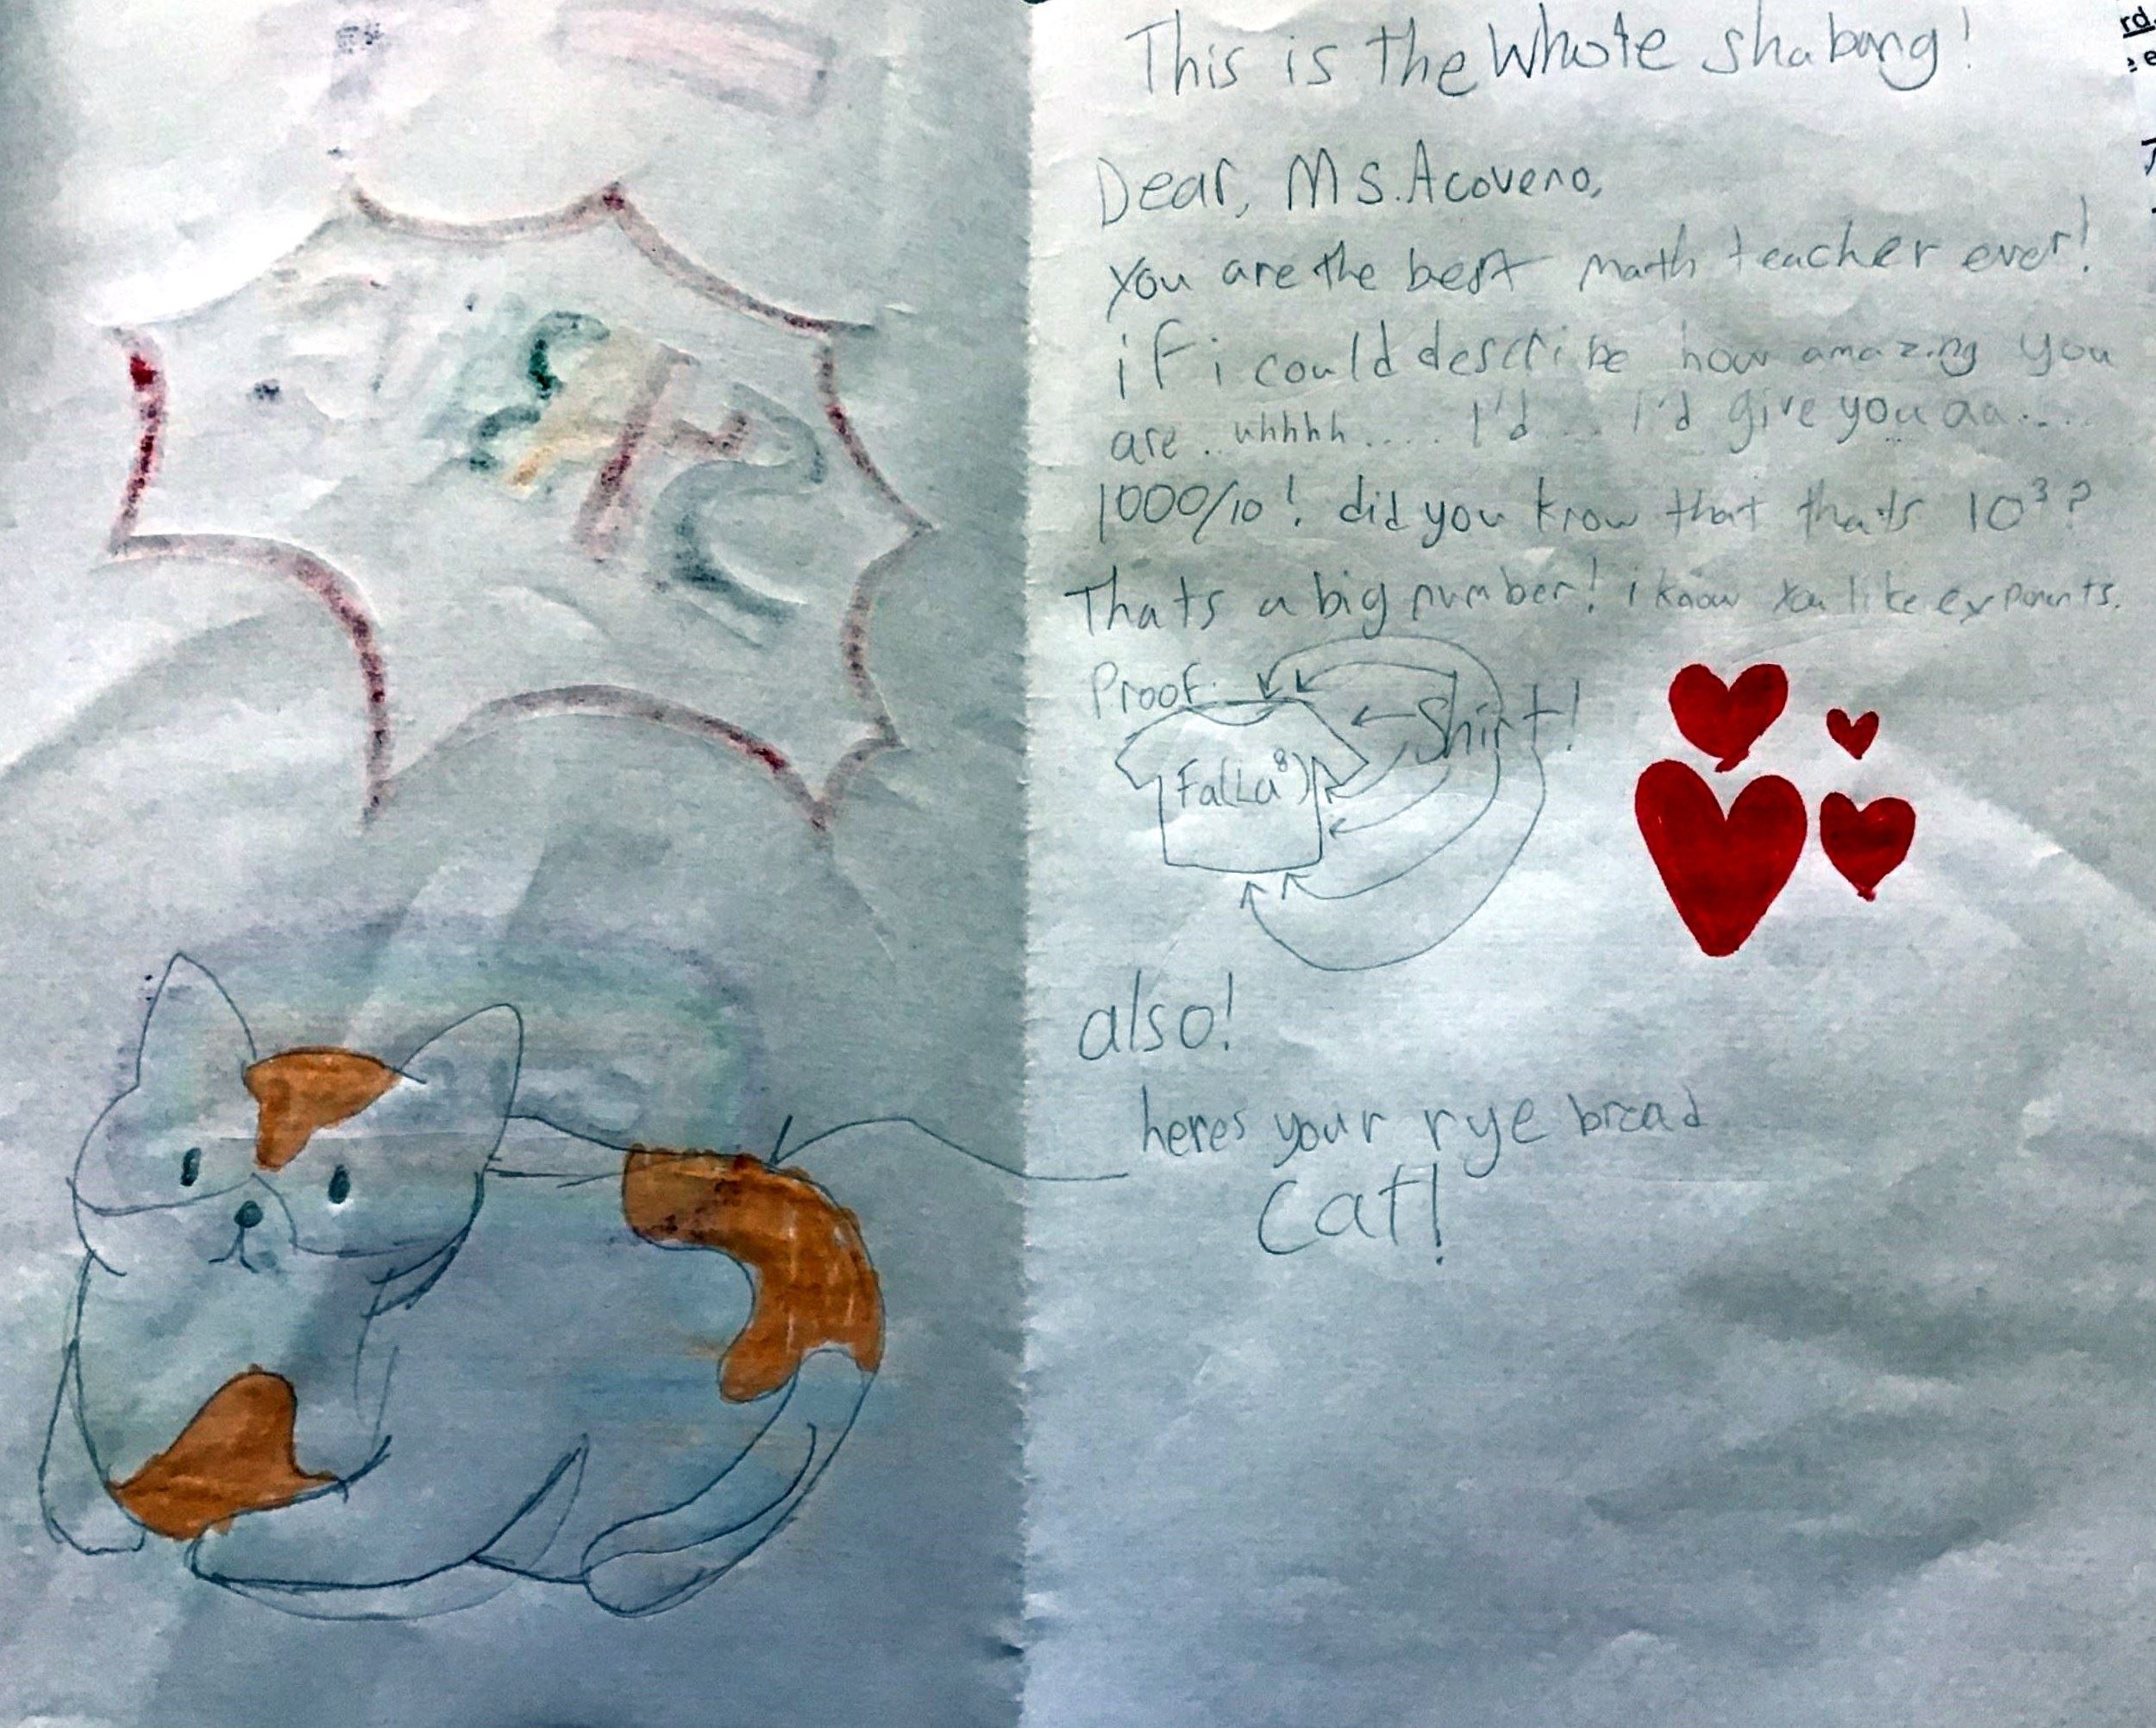 This is the Whole shabang!
Dear, Ms. Acoveno,
You are the best math teacher ever!
if i could describe how amazing you
are.. uhhhh..... I'd... I'd give you aa....
1000/10! did you know that thats 10³?
Thats a big number! i know you like exponents.
Proof:
Shirt!
Fa(La⁸)
also!
heres your rye bread
cat!